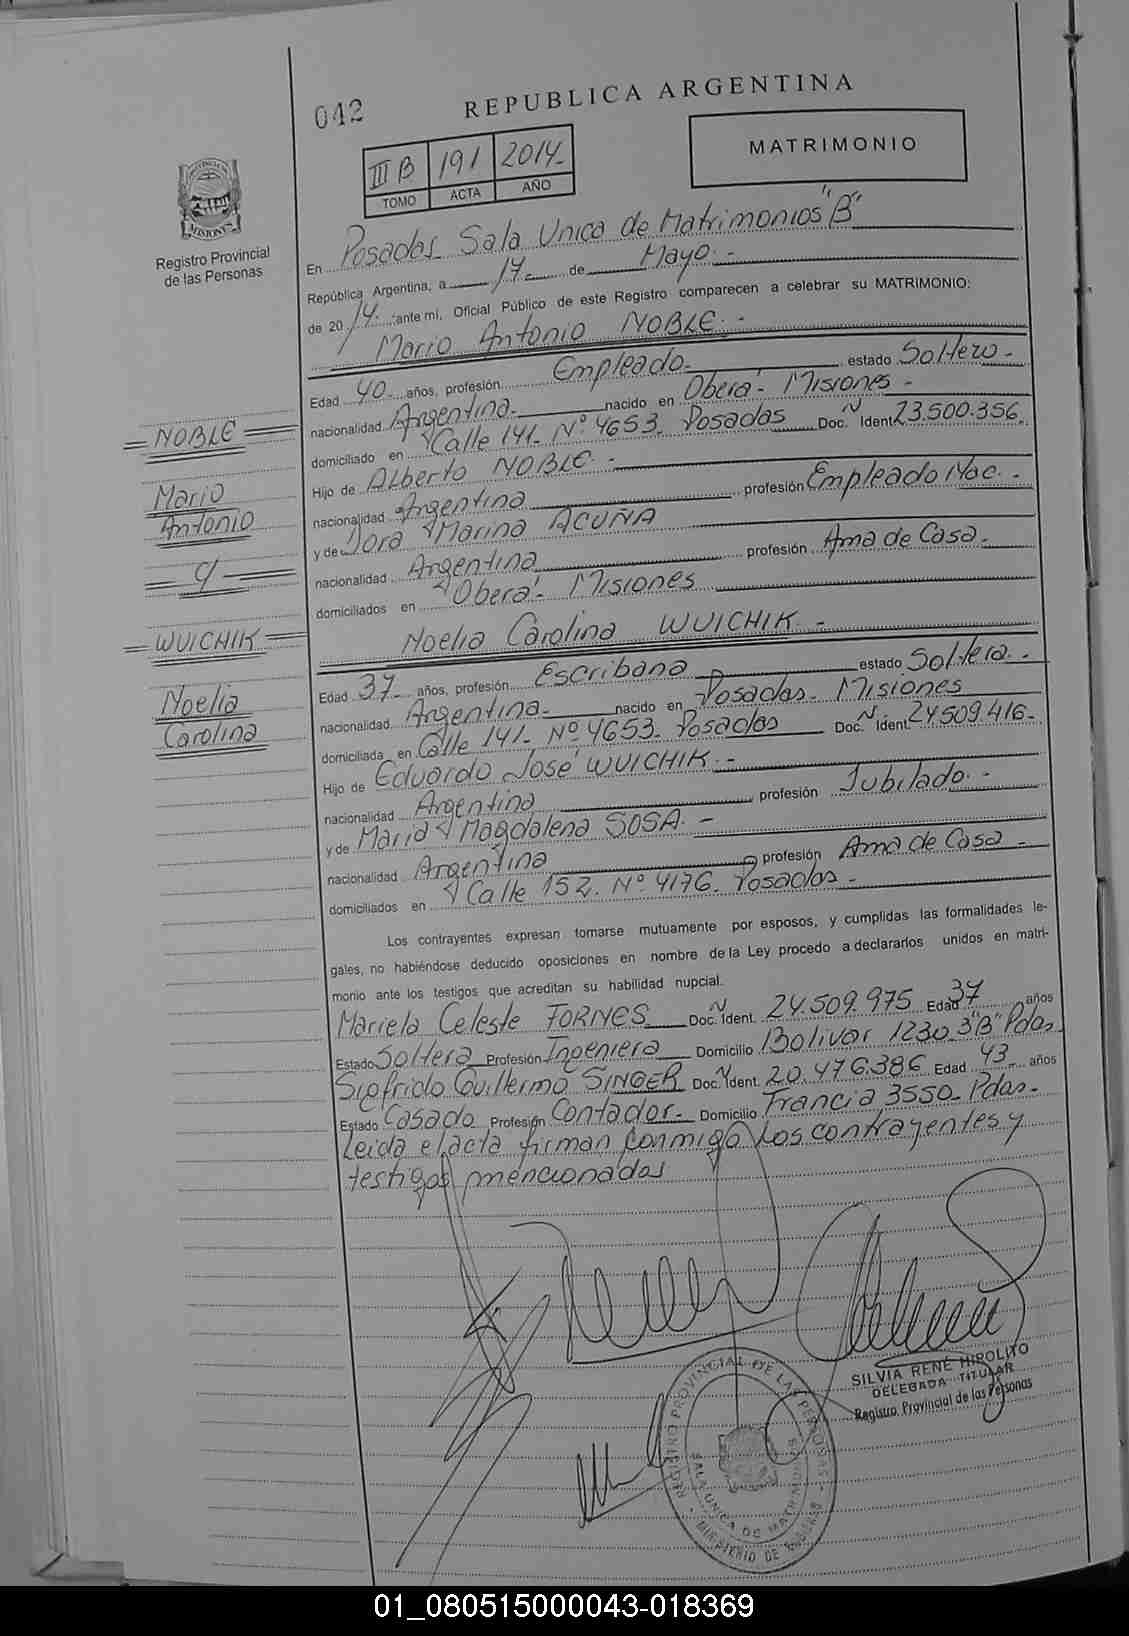 042
REPUBLICA ARGENTINA
MATRIMONIO
III B 191 2014-
TOMO ACTA AÑO
PROVINCIA DE MISIONES
Registro Provincial
de las Personas
En Posadas Sala Unica de Matrimonios "B"
República Argentina, a 17- de Mayo.-
de 20 14. ante mí, Oficial Público de este Registro comparecen a celebrar su MATRIMONIO:
Mario Antonio NOBLE.-
Edad 40 años, profesión Empleado- estado Soltero-
nacionalidad Argentina- nacido en Oberá- Misiones-
domiciliado en Calle 141- Nº 4653- Posadas Doc. Ident. 23.500.356.
Hijo de Alberto NOBLE.-
nacionalidad Argentina profesión Empleado Nac.-
y de Dora Marina ACUÑA
nacionalidad Argentina profesión Ama de Casa-
domiciliados en Oberá- Misiones
Noelia Carolina WUICHIK.-
Edad 37- años, profesión Escribana estado Soltera.-
nacionalidad Argentina- nacido en Posadas- Misiones
domiciliada en Calle 141- Nº 4653- Posadas Doc. Ident. 24.509.416-
Hijo de Eduardo José WUICHIK.-
nacionalidad Argentina profesión Jubilado.-
y de María Magdalena SOSA.-
nacionalidad Argentina profesión Ama de Casa-
domiciliados en Calle 152. Nº 4176. Posadas.-
Los contrayentes expresan tomarse mutuamente por esposos, y cumplidas las formalidades le-
gales, no habiéndose deducido oposiciones en nombre de la Ley procedo a declararlos unidos en matri-
monio ante los testigos que acreditan su habilidad nupcial.
Mariela Celeste FORNES Doc. Ident. 24.509.975 Edad 37 años
Estado Soltera Profesión Ingeniera Domicilio Bolivar 1230-3"B" Pdas.
Sigfrido Guillermo SINGER Doc. Ident. 20.476.386 Edad 43- años
Estado Casado Profesión Contador- Domicilio Francia 3550- Pdas-
Leida el acta firman conmigo los contrayentes y
testigos mencionados
NOBLE
Mario
Antonio
y
WUICHIK
Noelia
Carolina
SILVIA RENÉ HIPOLITO
DELEGADA TITULAR
Registro Provincial de las Personas
REGISTRO PROVINCIAL DE LAS PERSONAS
SALA UNICA DE MATRIMONIOS
MINISTERIO DE
01_080515000043-018369